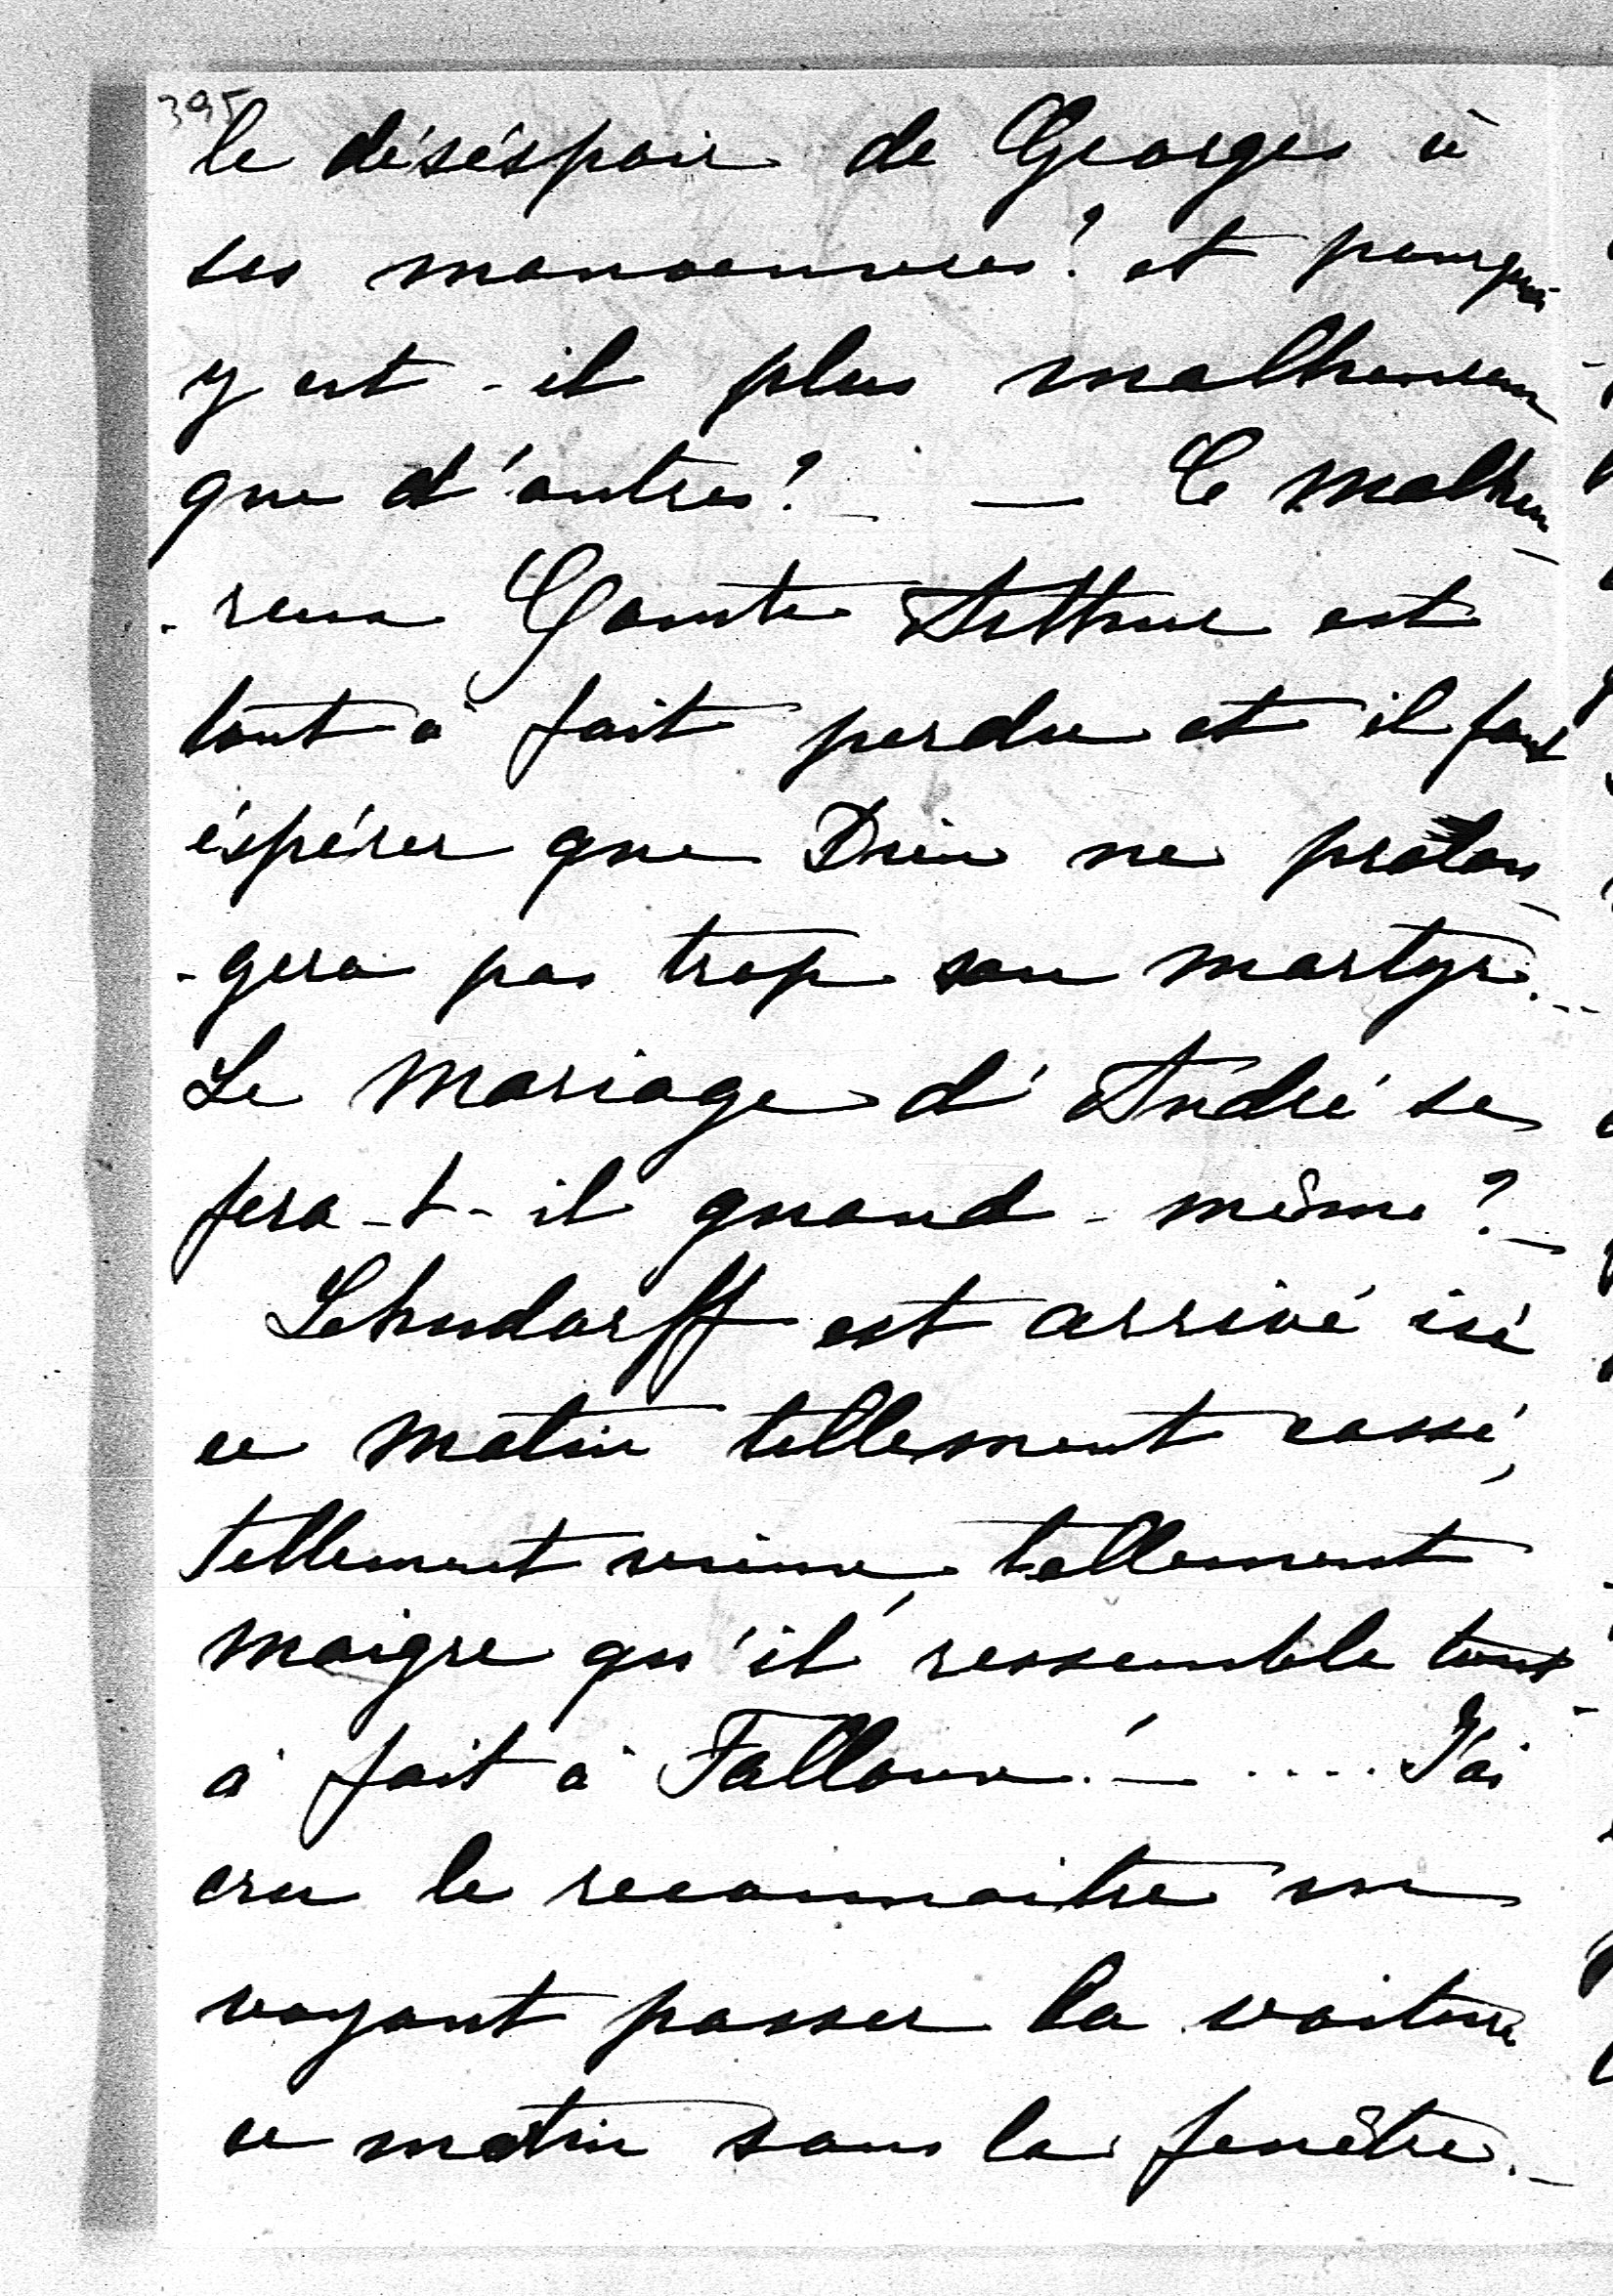 395
le déséspoir de Georges à
ses manoeuvres? et pourquoi
y est-il plus malheureux
que d'autres? — Ce malheu-
-reux Comte Arthur est
tout à fait perdu et il faut
éspérer que Dieu ne prolon-
-gera pas trop son martyr. —
Le mariage d'André se
fera-t-il quand-même? —
Lehndorff est arrivé ici
ce matin tellement cassé,
tellement vieux, tellement
maigre qu'il ressemble tout
à fait à Falloux! — .... J'ai
cru le reconnaitre en
voyant passer la voiture
ce matin sous la fenêtre. —